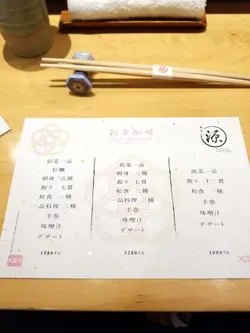 おまかせ
源
前菜一品
牡蠣
刺身 五種
握り 七貫
和食 二種
一品料理 二種
手巻
味噌汁
デザート
前菜一品
刺身 三種
握り 七貫
和食 二種
一品料理 二種
手巻
味噌汁
デザート
前菜一品
握り 十二貫
和食 二種
手巻
味噌汁
デザート